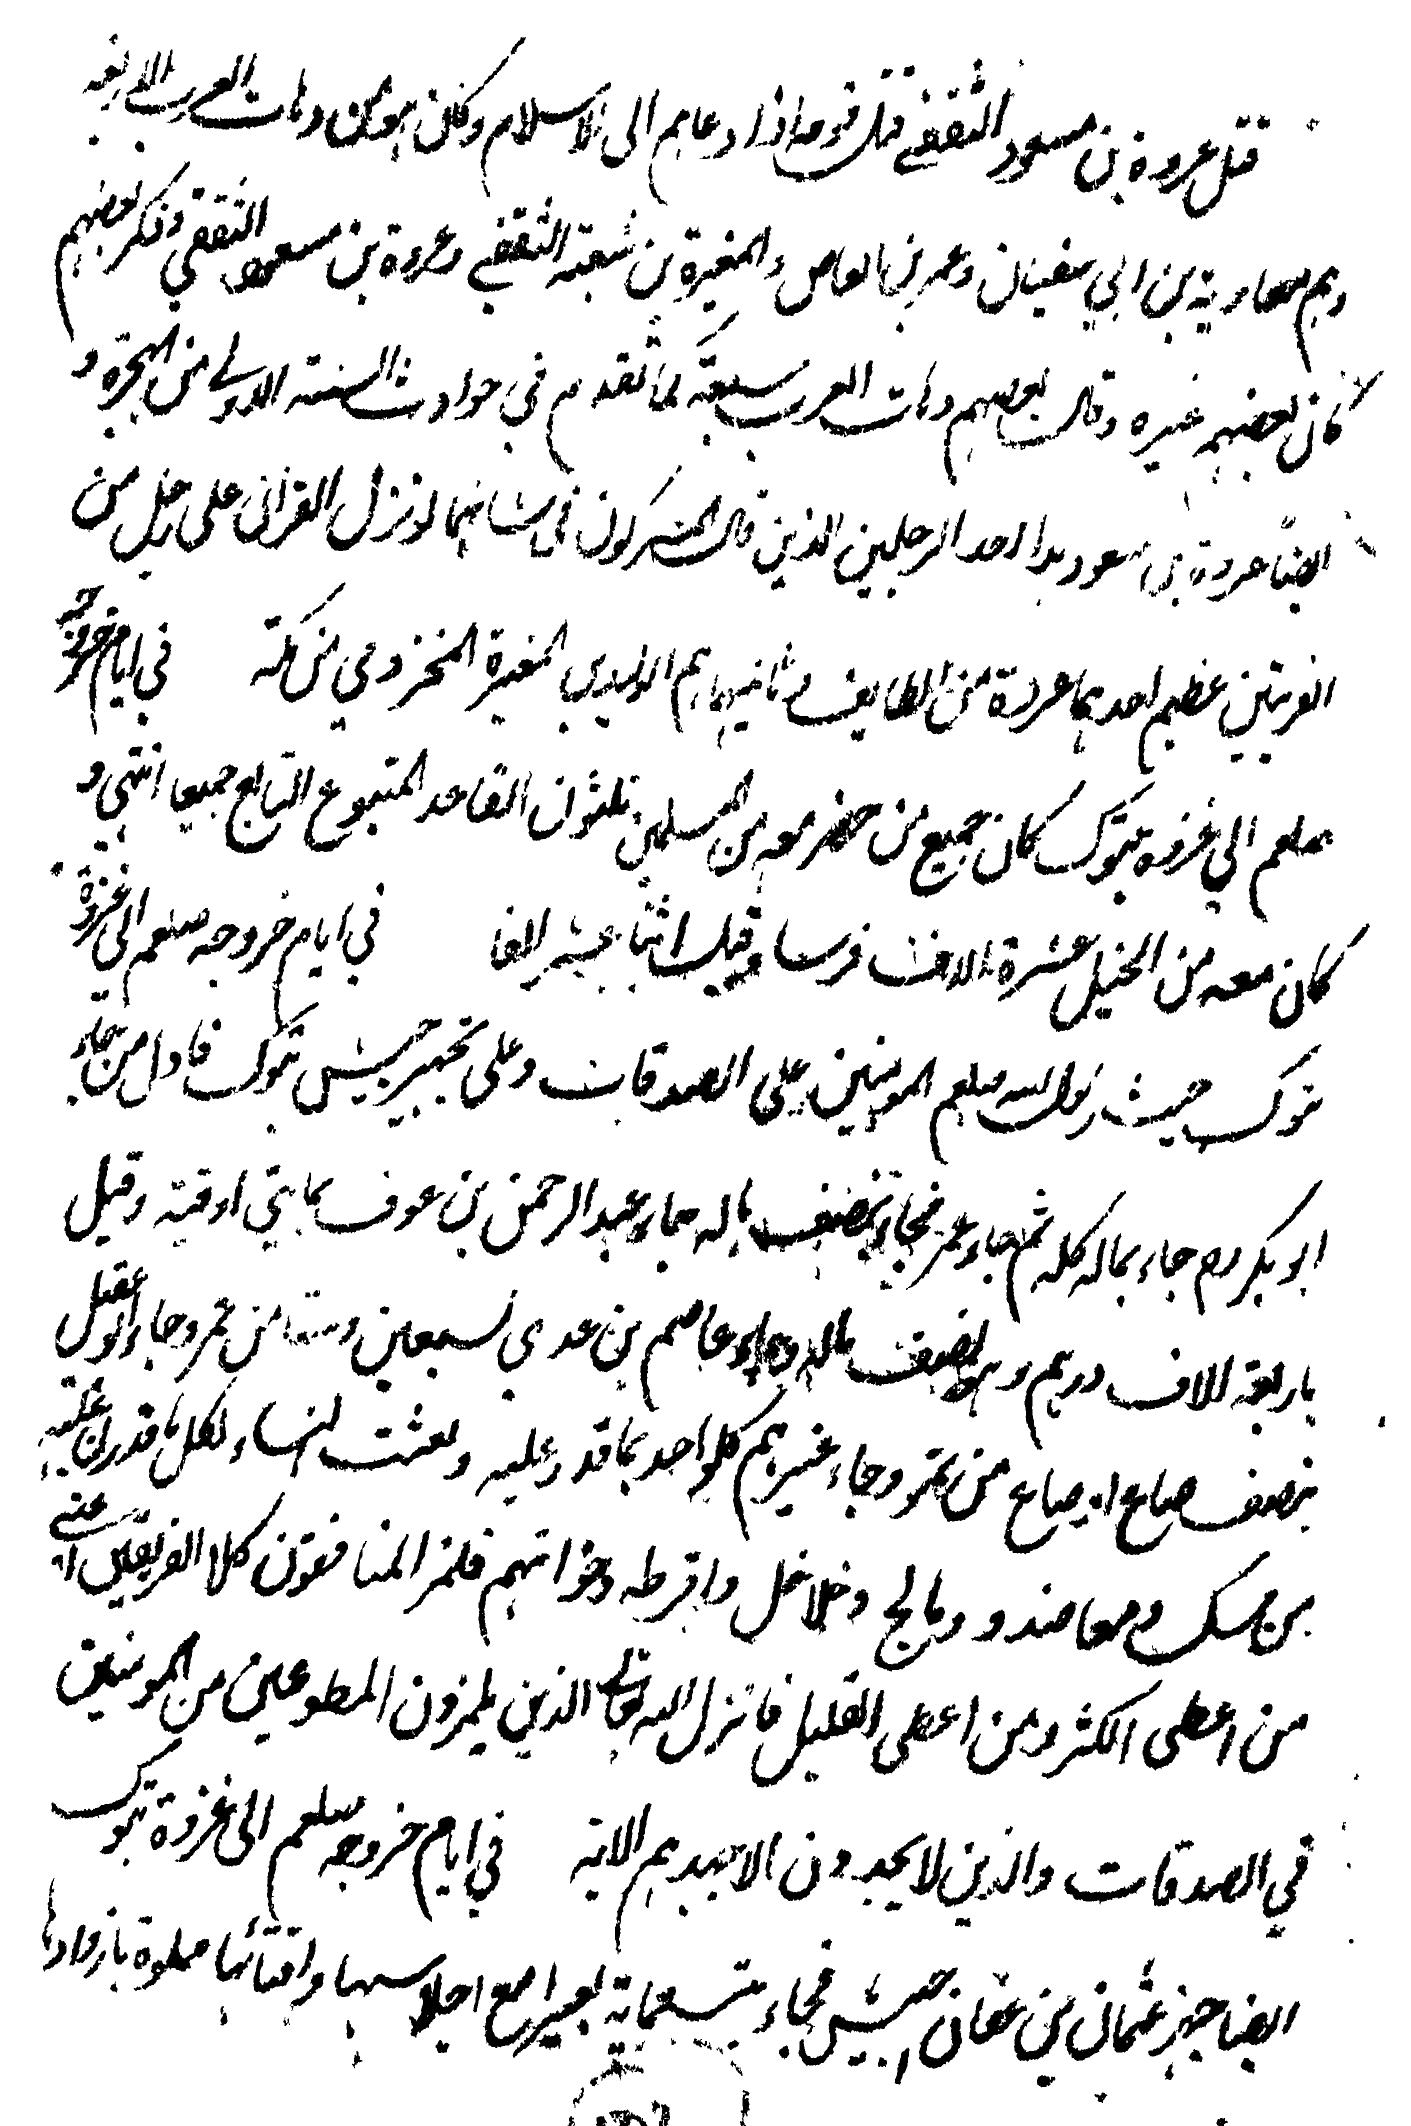 قتل عروة بن مسعود الثقفي قتله قومه اذا دعاهم الى الاسلام وكان هو من دهات العرب الاربعة
وهم معاوية بن ابي سفيان وعمرو بن العاص والمغيرة بن شعبة الثقفي وعروة بن مسعود الثقفي وذكر بعضهم
كان بعضهم غيره وقال بعضهم دهات العرب سبعة كما تقدم في حوادث السنة الاولى من الهجرة و
ايضا عروة بن مسعود هذا احد الرجلين الذين قال المشركون في شانهما لو نزل القران على رجل من
القريتين عظيم احدهما عروة من الطايف وثانيهما هم الوليد بن المغيرة المخزومي من مكة في ايام خروجه
صلعم الى غزوة تبوك كان جميع من حضر معه من المسلمين ثلثون الفا حد المتبوع التابع جميعا انتهى و
كان معه من الخيل عشرة الاف فرسا وقيل اثنا عشر الفا في ايام خروجه صلعم الى غزوة
تبوك حيث رسول الله صلعم المومنين على الصدقات وعلى تجهيز جيش تبوك فاول من جاء
ابو بكر رض جاء بماله كله ثم جاء عمر فجاء بنصف ماله جاء عبد الرحمن بن عوف بمايتي اوقية وقيل
باربعة الاف درهم وهو نصف ماله وجاء عاصم بن عدي بسبعين وسقا من تمر وجاء ابو عقيل
بنصف صاع او صاع من تمر وجاء غيرهم كلواحد بما قدر عليه وبعثت النساء بكل ما قدرن عليه
من مسك ومعاضد و ودمالج وخلاخل واقرطه وخواتهم فلمز المنافقون كلا الفريقين اعني
من اعطى الكثر ومن اعطى القليل فانزل الله تعالى الذين يلمزون المطوعين من المومنين
في الصدقات والذين لا يجدون الا جهدهم الاية في ايام خروجه صلعم الى غزوة تبوك
ايضا جهز عثمان بن عفان الجيش فجاء بتسعماية بعير مع احلاسها واقتابها مملوة بازوادها